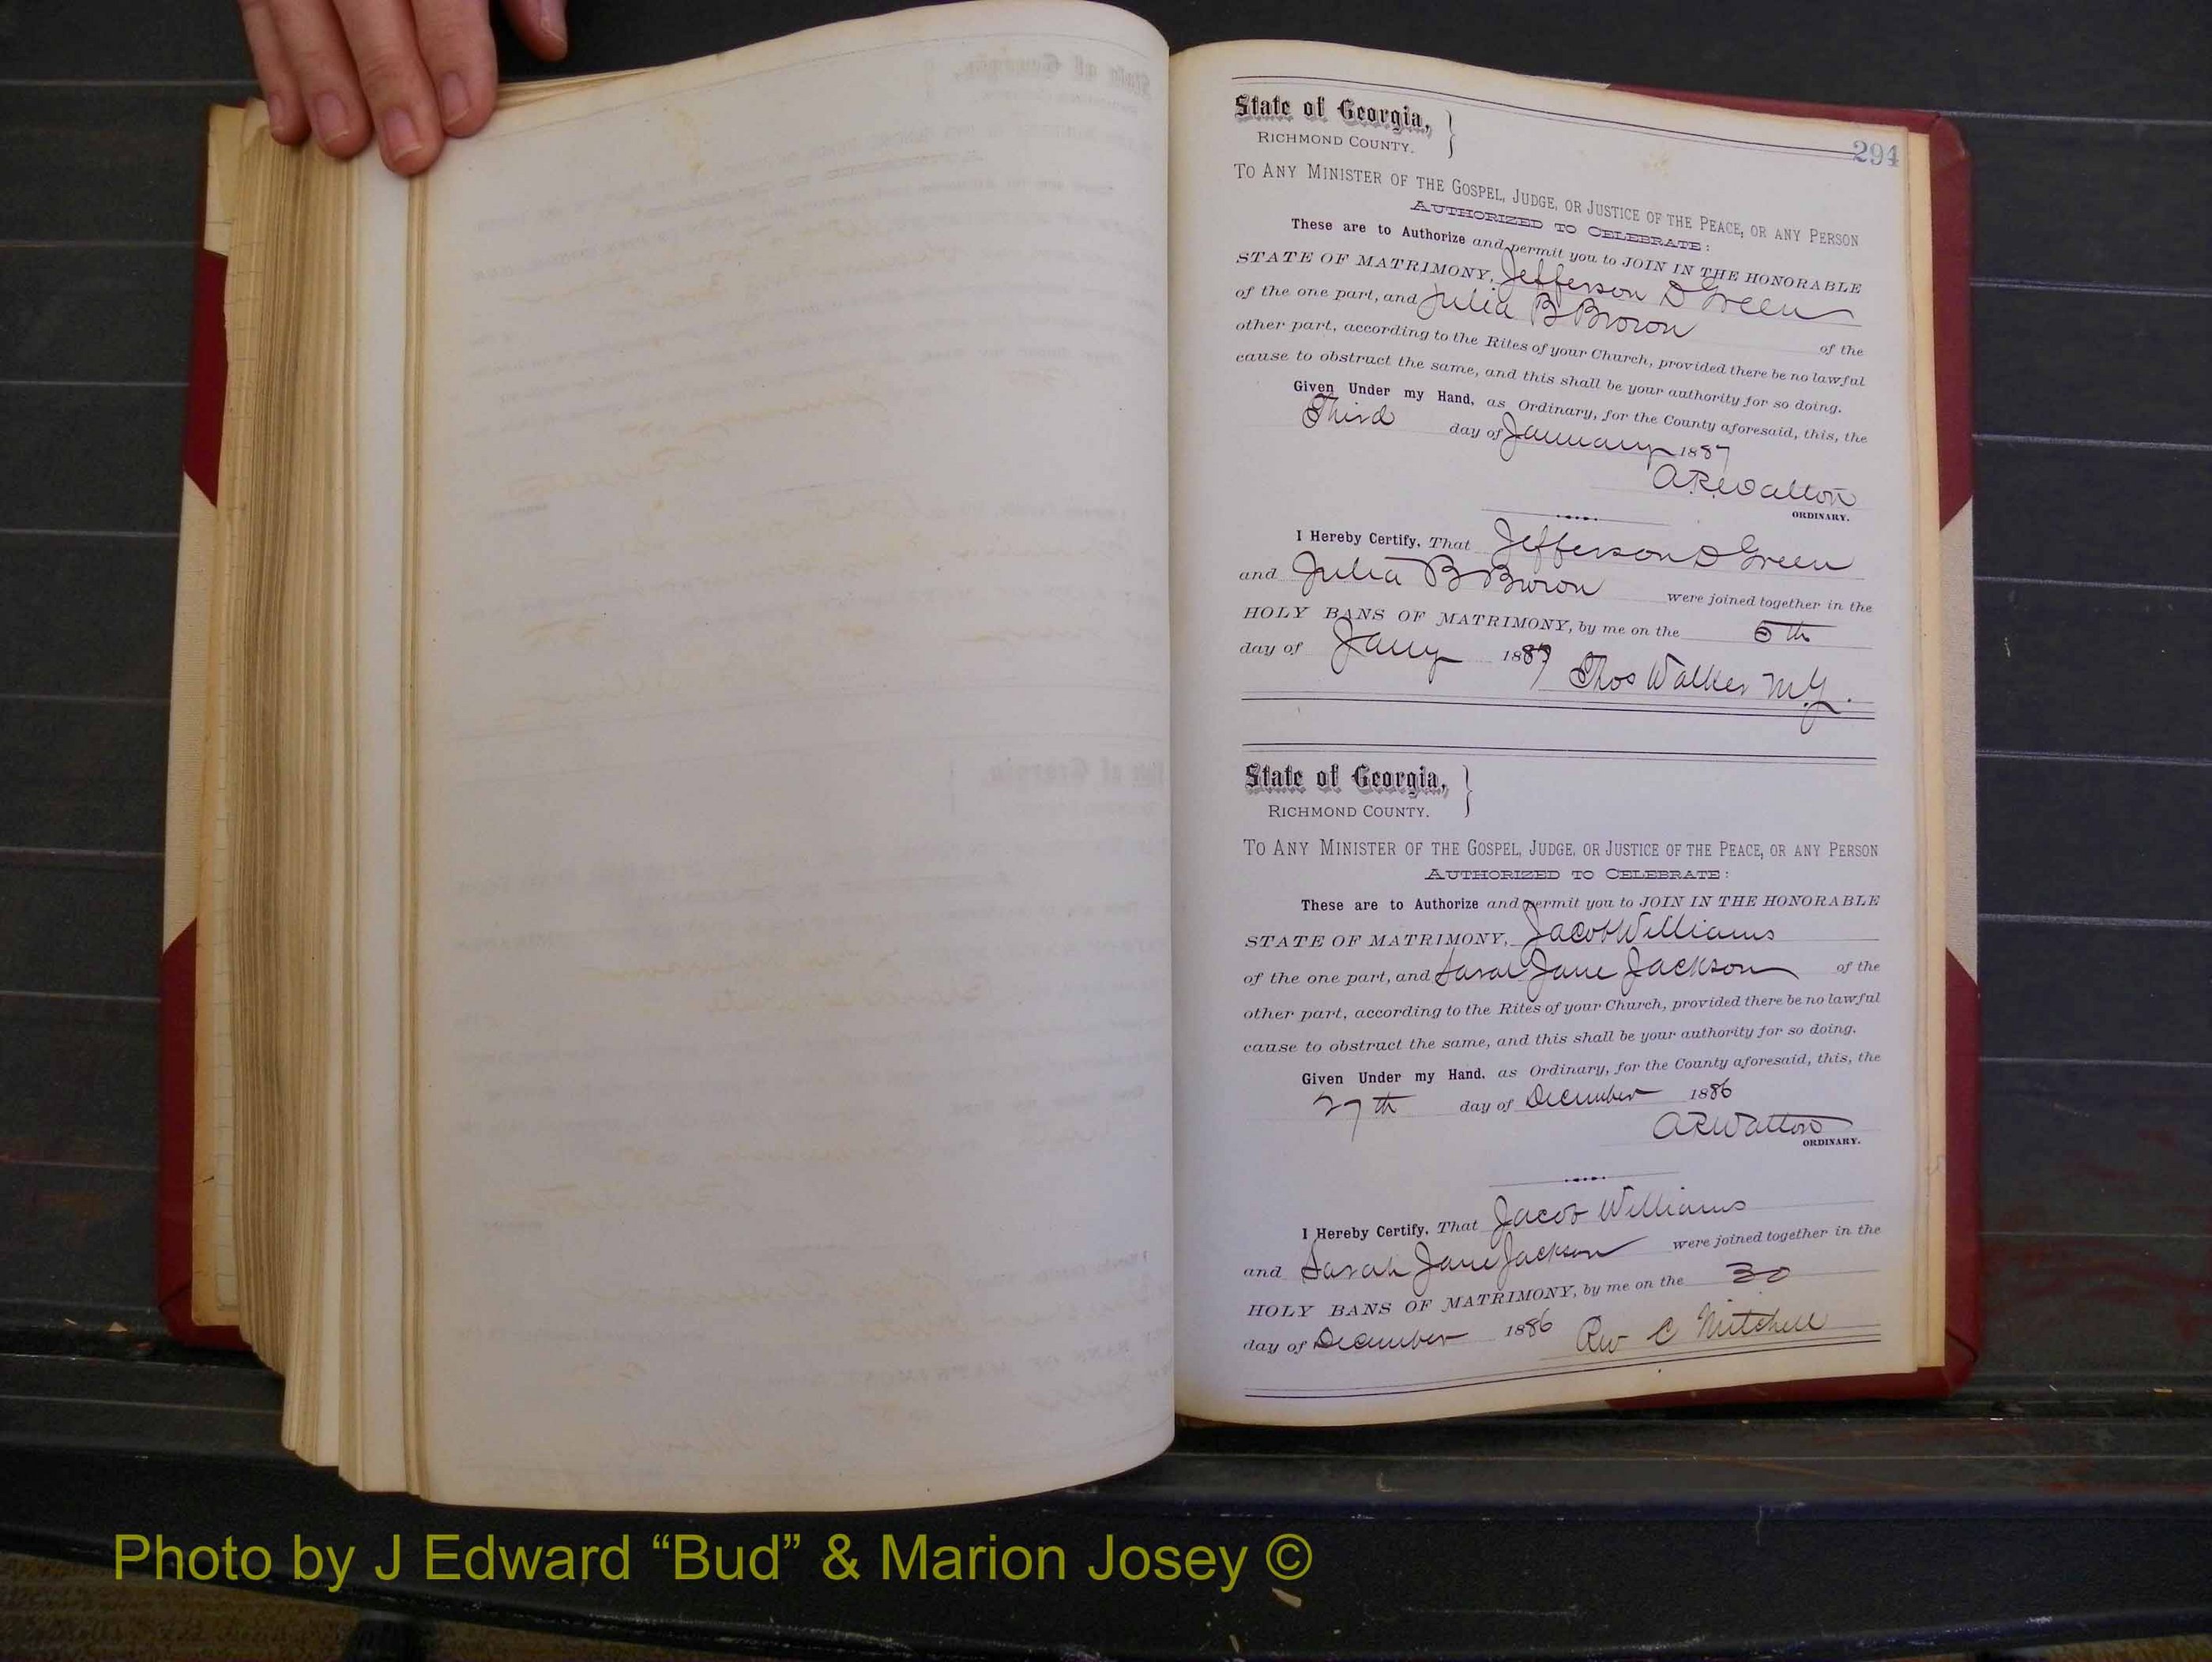 294
State of Georgia,
RICHMOND COUNTY.
TO ANY MINISTER OF THE GOSPEL, JUDGE, OR JUSTICE OF THE PEACE, OR ANY PERSON
AUTHORIZED TO CELEBRATE:
These are to Authorize and permit you to JOIN IN THE HONORABLE
STATE OF MATRIMONY, Jefferson D Green
of the one part, and Julia B Brown of the
other part, according to the Rites of your Church, provided there be no lawful
cause to obstruct the same, and this shall be your authority for so doing.
Given Under my Hand, as Ordinary, for the County aforesaid, this, the
Third day of January 1887
A.R. Walton
ORDINARY.
I Hereby Certify, That Jefferson D Green
and Julia B Brown were joined together in the
HOLY BANS OF MATRIMONY, by me on the 5th
day of Jany 1887 Thos Walker M.G.
State of Georgia,
RICHMOND COUNTY.
TO ANY MINISTER OF THE GOSPEL, JUDGE, OR JUSTICE OF THE PEACE, OR ANY PERSON
AUTHORIZED TO CELEBRATE:
These are to Authorize and permit you to JOIN IN THE HONORABLE
STATE OF MATRIMONY, Jacob Williams
of the one part, and Sarah Jane Jackson of the
other part, according to the Rites of your Church, provided there be no lawful
cause to obstruct the same, and this shall be your authority for so doing.
Given Under my Hand, as Ordinary, for the County aforesaid, this, the
27th day of December 1886
A R Walton
ORDINARY.
I Hereby Certify, That Jacob Williams
and Sarah Jane Jackson were joined together in the
HOLY BANS OF MATRIMONY, by me on the 30
day of December 1886 Rev C Mitchell
Photo by J Edward “Bud” & Marion Josey ©